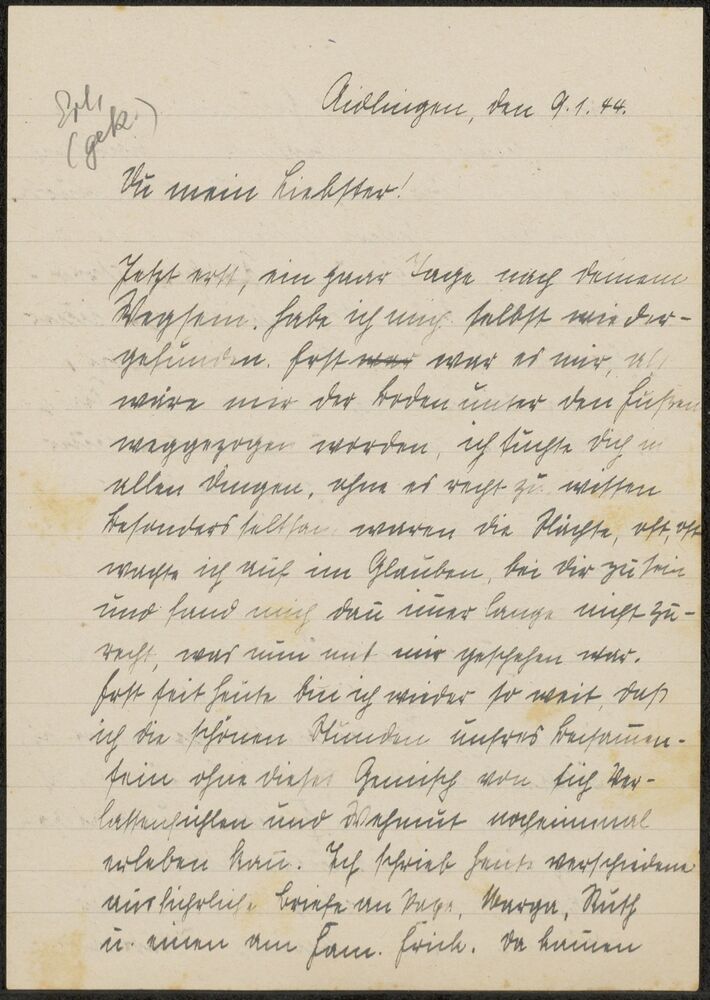 Erl.
(gek.)
Aidlingen, den 9.1.44.
Du mein Liebster!
Jetzt erst, ein paar Tage nach Deinem
Wegsein. habe ich mich selbst wieder-
gefunden. Erst war es mir, als
wäre mir der Boden unter den Füßen
weggezogen worden, ich suchte Dich in
allen Dingen, ohne es recht zu wissen
Besonders seltsam waren die Nächte, oft, oft
wachte ich auf im Glauben, bei Dir zu sein
und fand mich dan̄ im̄er lange nicht zu-
recht, was nun mit mir geschehen war.
Erst seit heute bin ich wieder so weit, daß
ich die schönen Stunden unsres Beisam̄en-
sein ohne dieses Gemisch von sich Ver-
lassenfühlen und Wehmut nocheinmal
erleben kan̄. Ich schrieb heute verschiedene
ausführliche Briefe an Marga, Ruth
u. einen an Fam. Frick. Da kamen